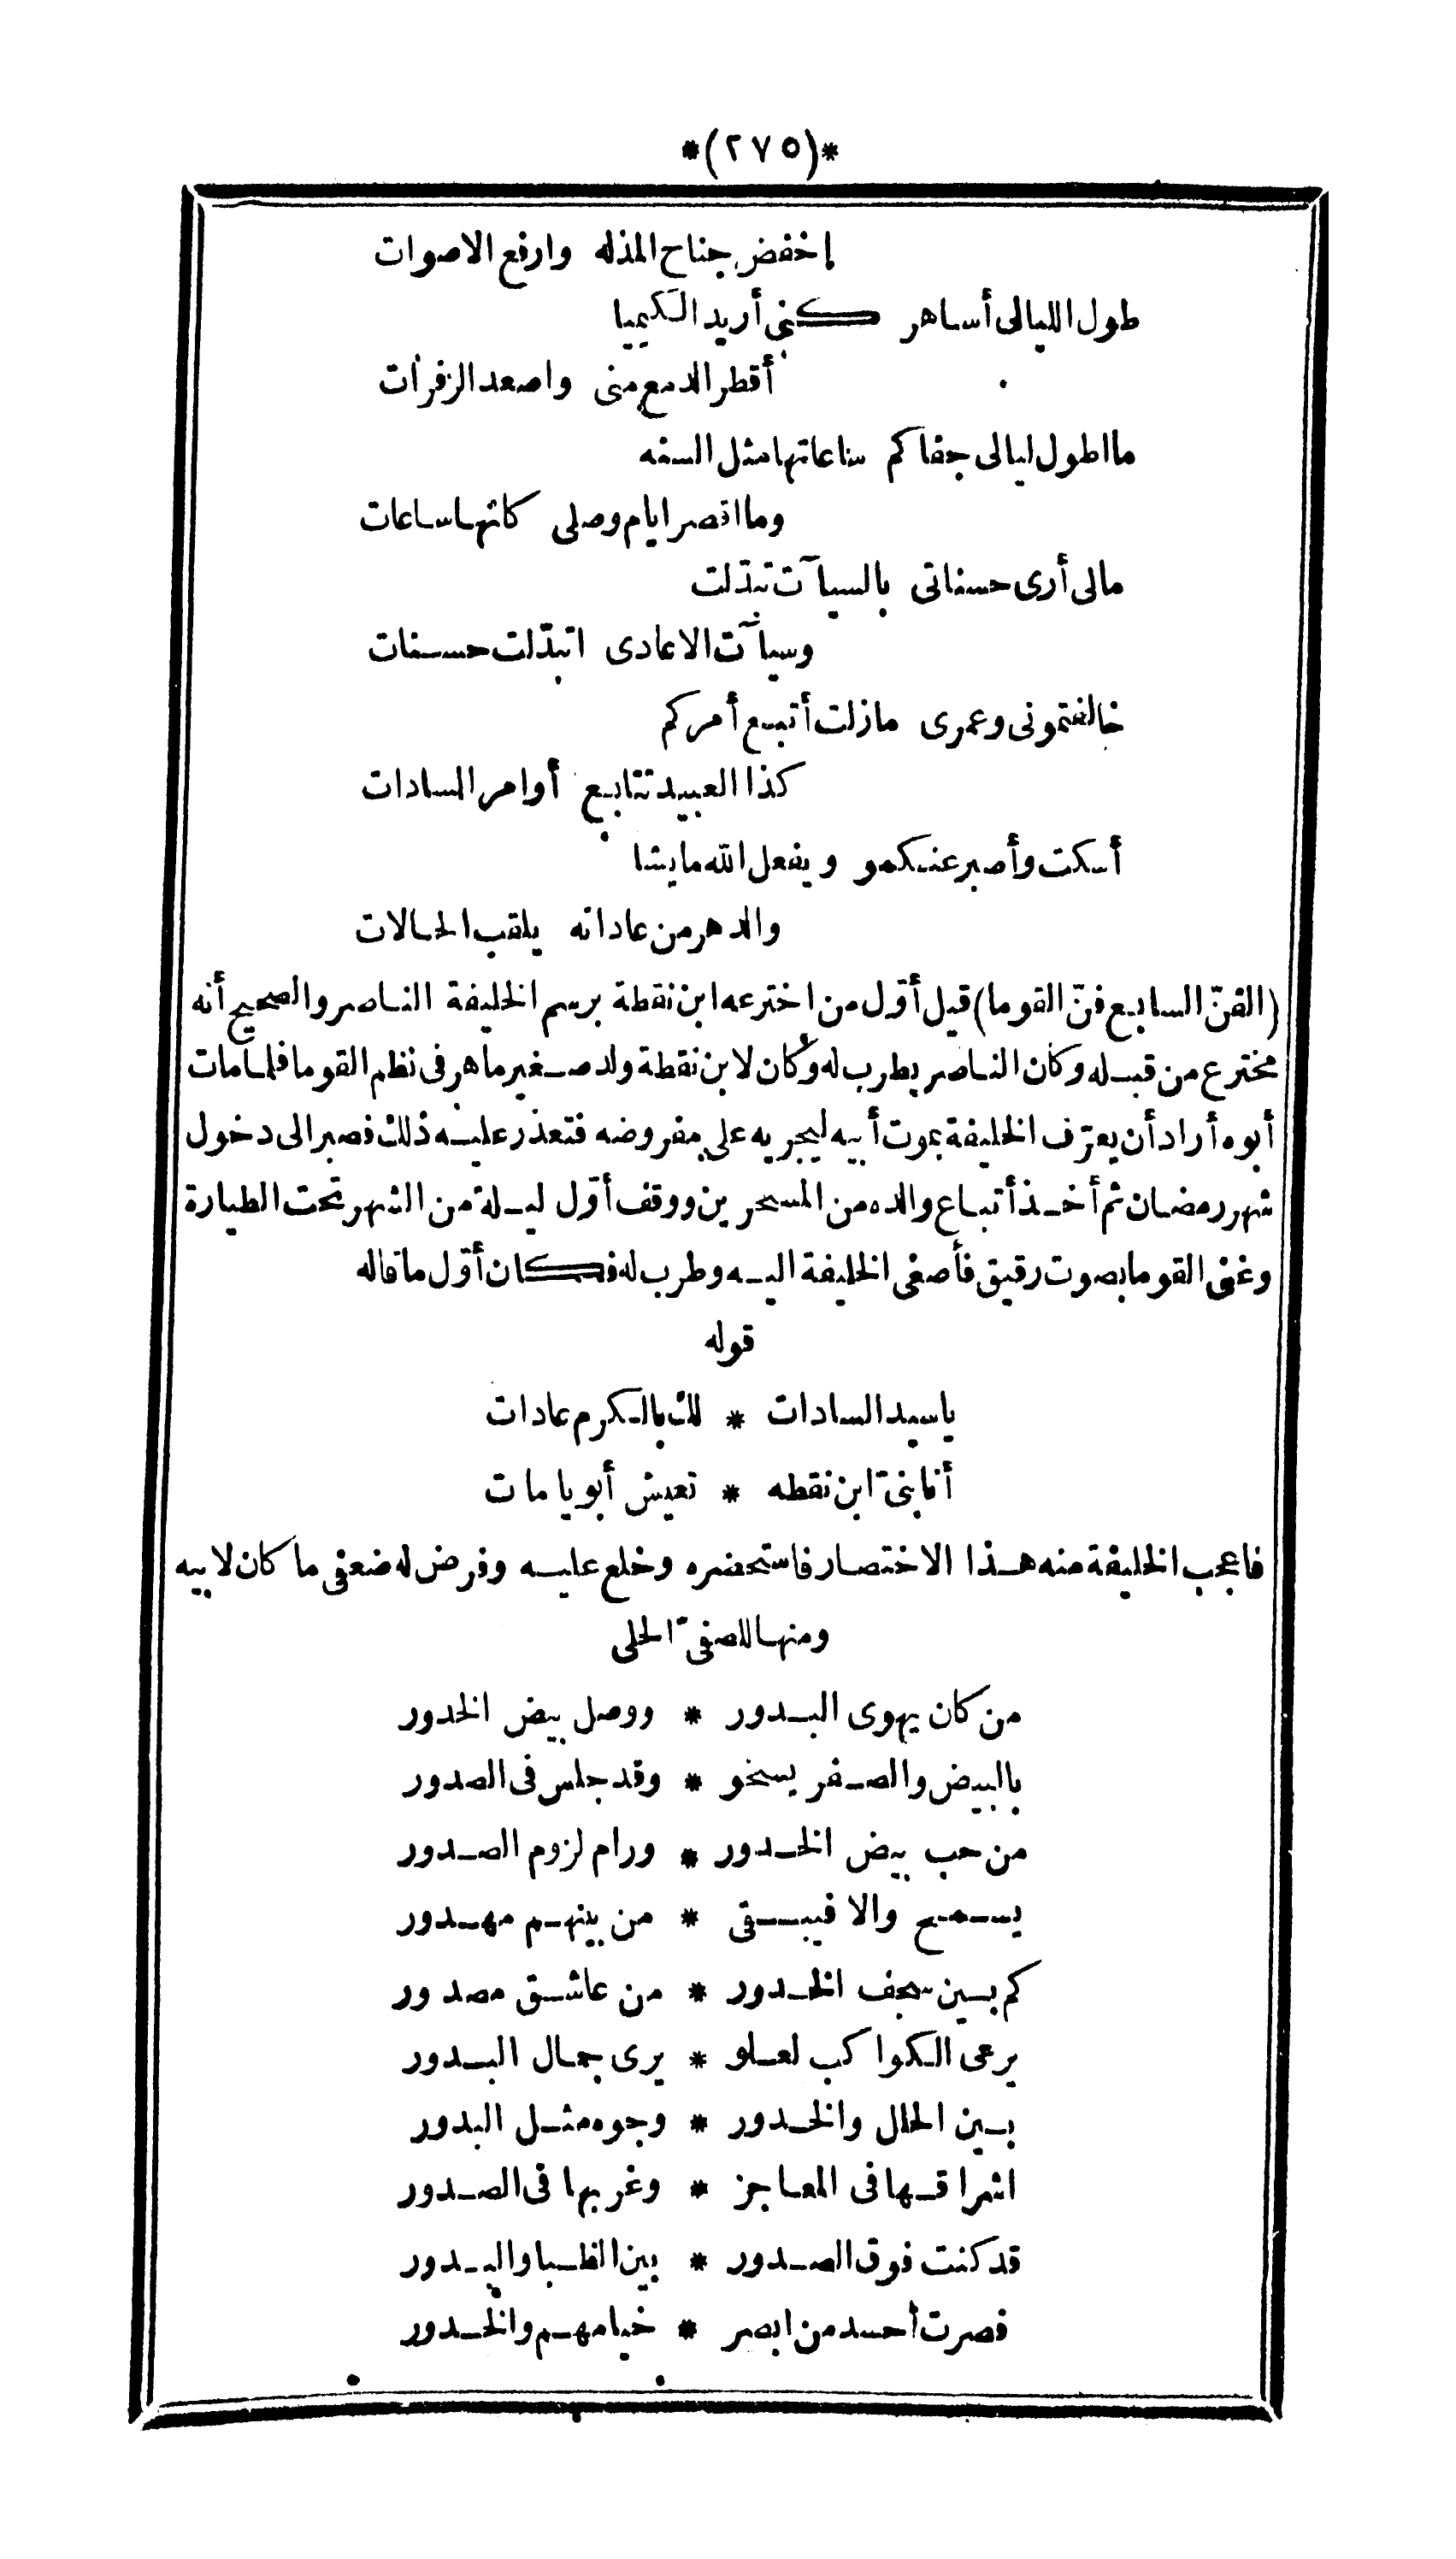 *(٢٧٥)*
إخفض جناح المذله وارفع الاصوات
طول الليالى أساهر كنى أريد الكيميا
أقطر الدمع منى واصعد الزفرات
ما اطول ليالى جفاكم ساعاتها مثل السنه
وما اقصر ايام وصلى كانها ساعات
مالى أرى حسناتى بالسيآت تبدّلت
وسيآت الاعادى اتبدّلت حسنات
خالفتمونى وعمرى مازلت أتبع أمركم
كذا العبيد تتابع أوامر السادات
أسكت وأصبر عنكمو ويفعل الله مايشا
والدهر من عاداته يلقب الحالات
(الفنّ السابع فنّ القوما) قيل أوّل من اخترعه ابن نقطة برسم الخليفة الناصر والصحيح أنه
مخترع من قبله وكان الناصر يطرب له وكان لابن نقطة ولد صغير ماهر فى نظم القوما فلمامات
أبوه أراد أن يعرّف الخليفة بموت أبيه ليجريه على مفروضه فتعذر عليه ذلك فصبر الى دخول
شهر رمضان ثم أخذ أتباع والده من المسحرين ووقف أوّل ليلة من الشهر تحت الطيارة
وغنى القوما بصوت رقيق فأصغى الخليفة اليه وطرب له فكان أوّل ماقاله
قوله
ياسيد السادات * لك بالكرم عادات
أنا بنىّ ابن نقطه * تعيش أبويا مات
فاعجب الخليفة منه هذا الاختصار فاستحضره وخلع عليه وفرض له ضعفى ما كان لابيه
ومنها للصفىّ الحلى
من كان يهوى البدور * ووصل بيض الخدور
بالبيض والصفر يسخو * وقد جلس فى الصدور
من حب بيض الخدور * ورام لزوم الصدور
يسمح والا فيبقى * من بينهم مهدور
كم بين سجف الخدور * من عاشق مصدور
يرعى الكواكب لعلو * يرى جمال البدور
بين الحلل والخدور * وجوه مثل البدور
اشراقها فى المعاجز * وغربها فى الصدور
قد كنت فوق الصدور * بين الظبا والبدور
فصرت أحسد من ابصر * خيامهم والخدور